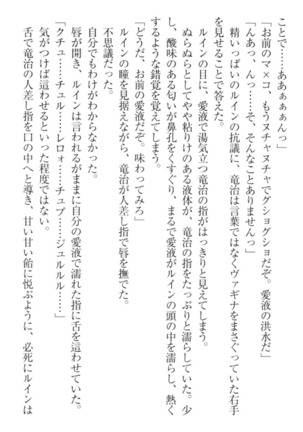 ことで……ああぁぁんっ」
「お前のマ×コ、もうヌチャヌチャでグショグショだぞ。愛液の洪水だ」
「んあっ、んっ……そ、そんなことありませんっ」
精いっぱいのルインの抗議に、竜治は言葉ではなくヴァギナをまさぐっていた右手
を見せることで答えた。
ルインの目に、愛液で湯気立つ竜治の指がはっきりと見えてしまう。
ぬらぬらとしてやや粘りけのある液体が、竜治の指をたっぷりと濡らしていた。少
し、酸味のある匂いが鼻孔をくすぐり、まるで愛液がルインの頭の中を濡らし、熱く
するような錯覚を覚えてしまう。
「どうだ、お前の愛液だぞ。味わってみろ」
ルインの瞳を見据えながら、竜治が人差し指で唇を撫でた。
不思議だった。
自分でもわけがわからなかった。
唇が開き、ルインは言われるがままに自分の愛液で濡れた指に舌を這わせていた。
「クチュ……チュル……レロォ……チュプ……ジュルルル……」
気がつけば這わせるといった程度ではない。
舌で竜治の人差し指を口の中へと導き、甘い甘い飴に悦ぶように、必死にルインは